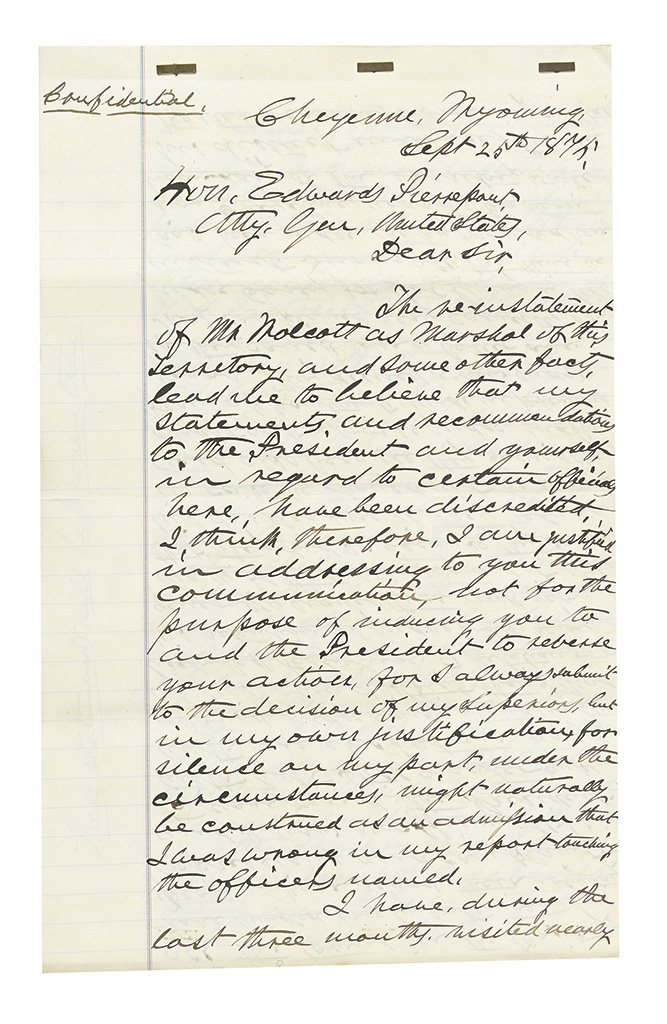 Confidential.
Cheyenne, Wyoming,
Sept 25th 1875,
Hon. Edwards Pierrepont,
Atty. Gen, United States,
Dear Sir,
The re-instatement
of Mr Wolcott as Marshal of this
Territory, and some other facts,
lead me to believe that my
statements and recommendations
to the President and yourself,
in regard to certain officials
here, have been discredited,
I think, therefore, I am justified
in addressing to you this
communication, not for the
purpose of inducing you to
and the President to reverse
your action, for I always submit
to the decision of my Superiors, but
in my own justification, for
silence on my part, under the
circumstances, might naturally
be construed as an admission that
I was wrong in my report touching
the officers named.
I have, during the
last three months, visited nearly